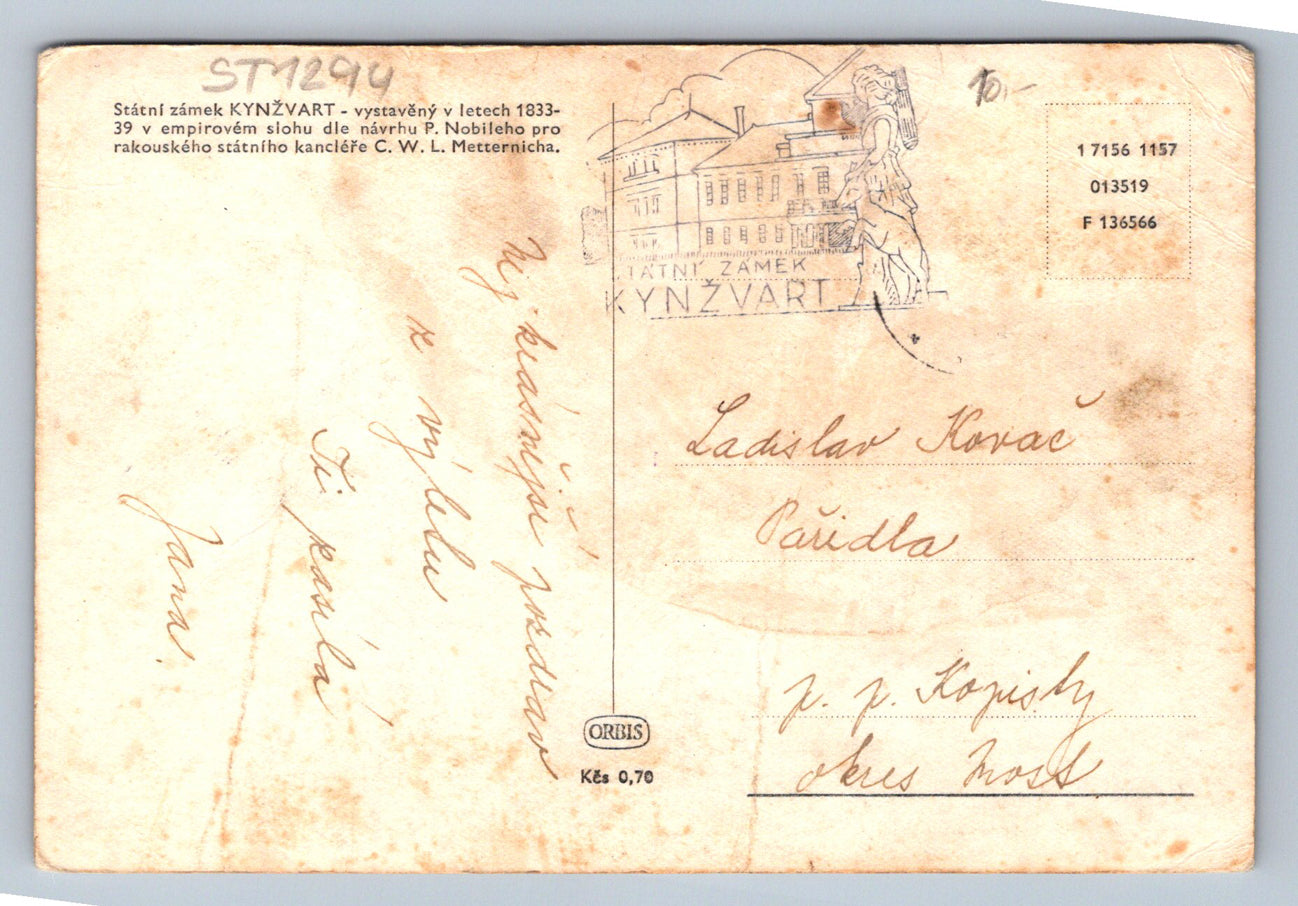 ST1294
Státní zámek KYNŽVART - vystavěný v letech 1833-
39 v empirovém slohu dle návrhu P. Nobileho pro
rakouského státního kancléře C. W. L. Metternicha.
Nej-krásnější pozdrav
z výletu
Ti posílá
Jana.
ORBIS
Kčs 0,70
STÁTNÍ ZÁMEK
KYNŽVART
10,-
1 7156 1157
013519
F 136566
Ladislav Kovač
Pařidla
p. p. Kopisty
okres Most